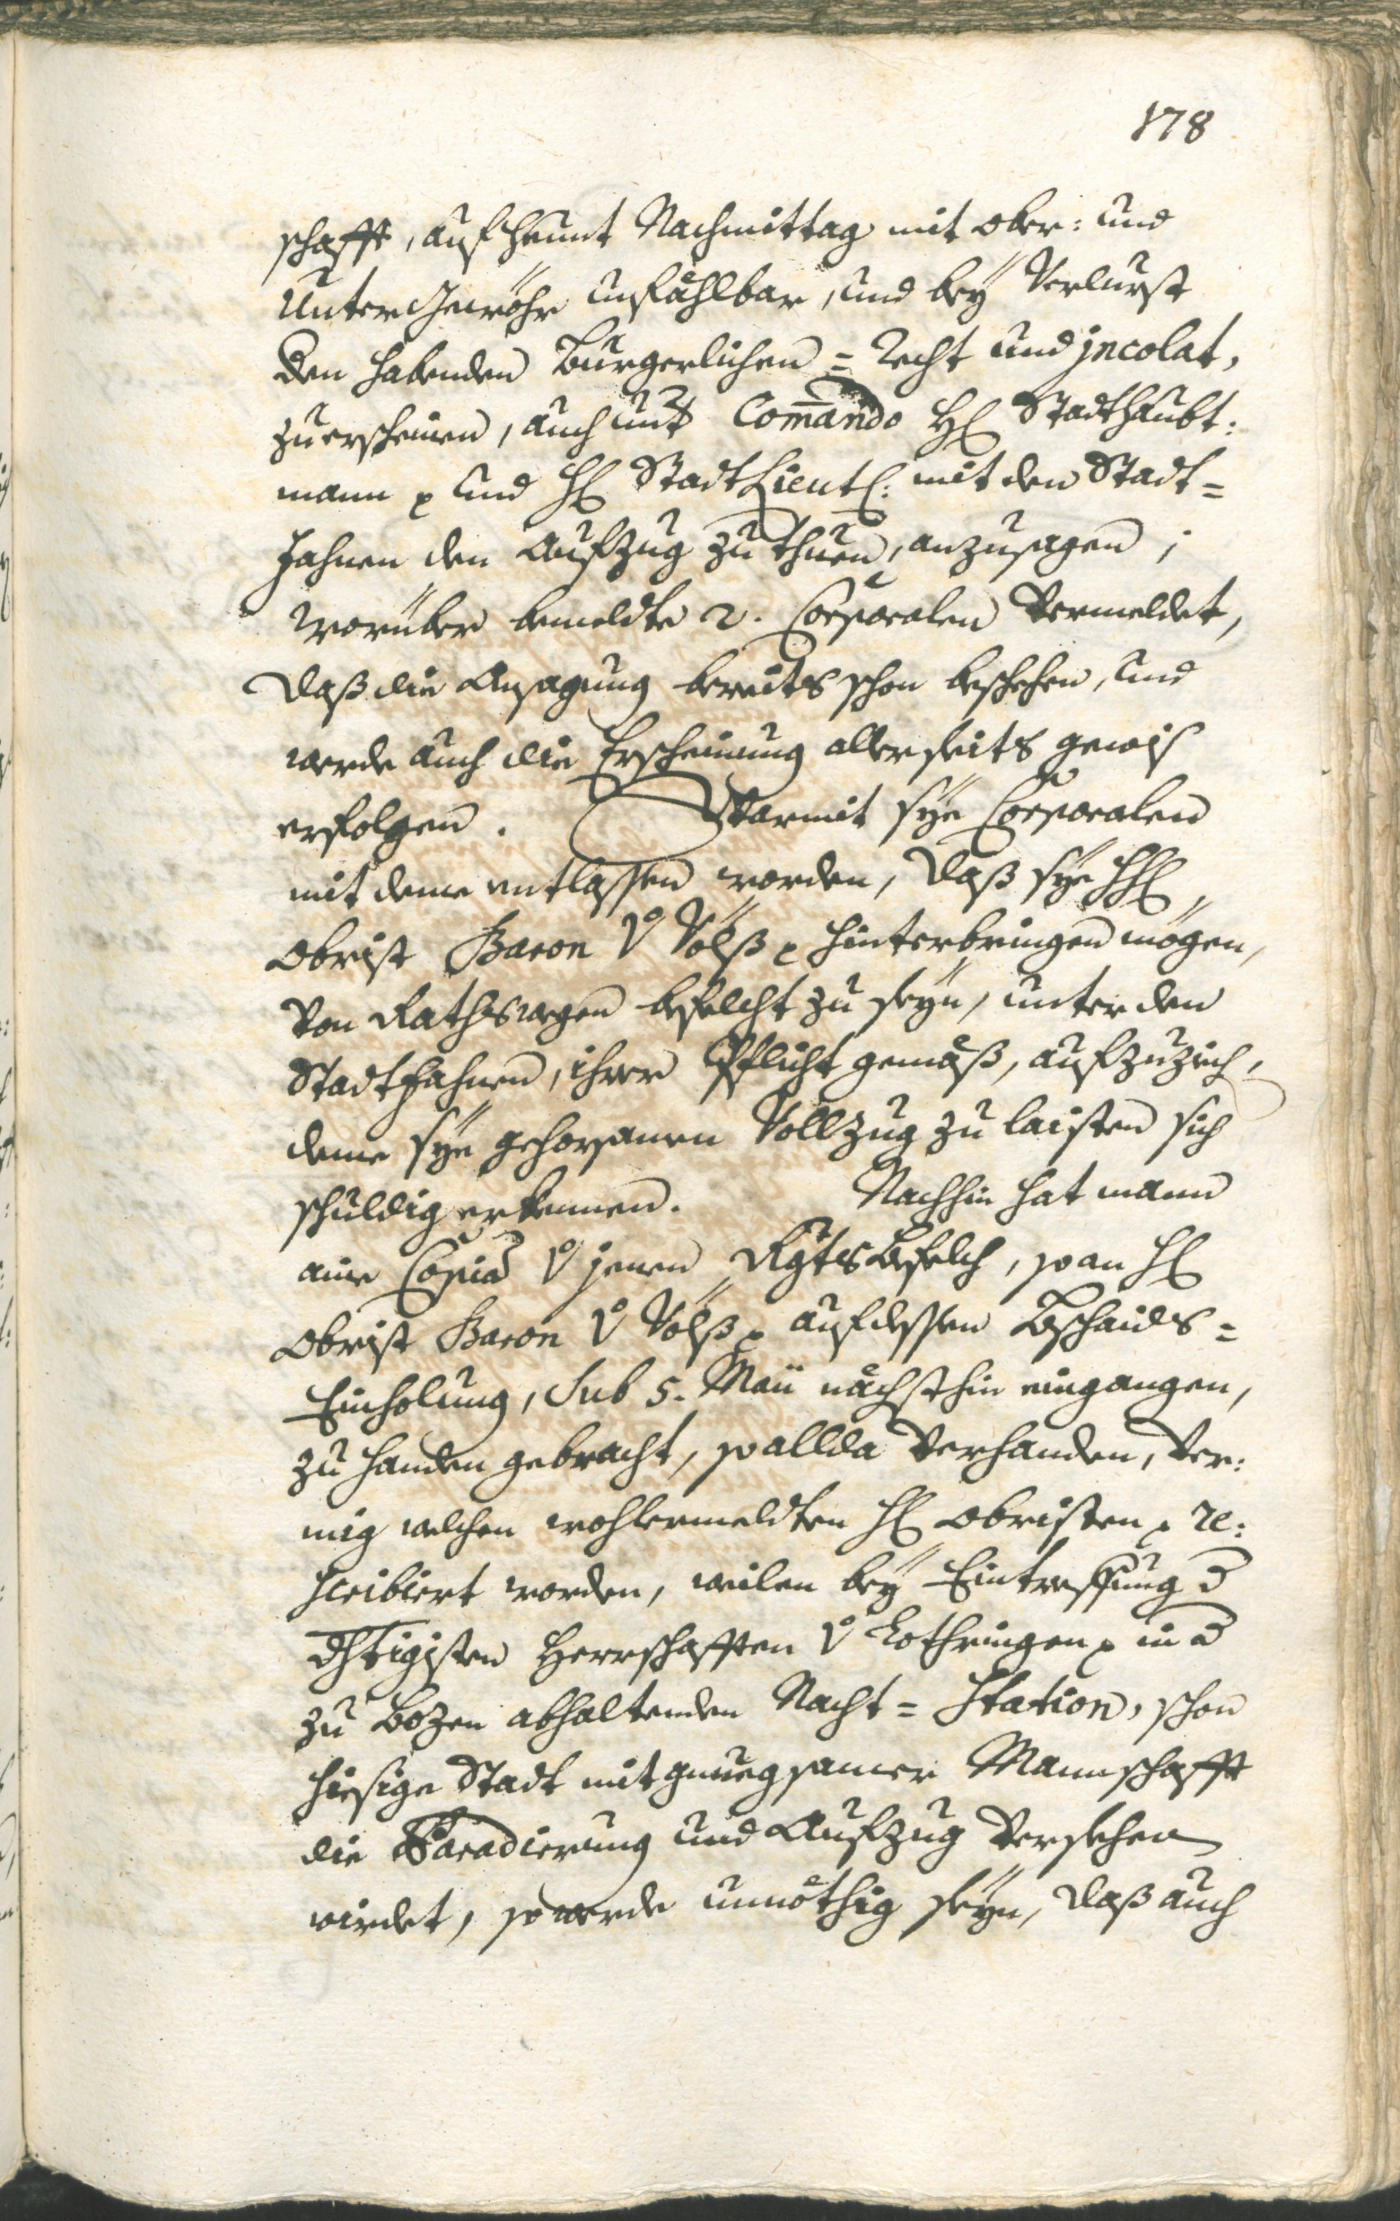 178
schafft, auf heunt Nachmittag mit ober: und
Unter Gewöhr unfählbar, und bey Verlurst
den habenden Burgerlichen = Recht und jncolat,
zuerscheinen, auch unter Comando H: Stadthaubt:
mann p und H: Stadt Lieut: mit den Stadt=
fahnen den Aufzug zu thuen, anzusagen;
Worüber bemeldte 2. Corporalen Vermeldet,
daß die Ansagung bereits schon beschehen, und
werde auch die Erscheinung allerseits gewis
erfolgen. Warmit sÿe Corporalen
mit deme entlassen worden, daß sÿe HH:
Obrist Baron v Völß p hinterbringen mögen,
Von Rathswegen befelcht zu seÿn, unter den
Stadtfahnen, ihrer Pflicht gemäß, aufzuzieh,
deme sÿe gehorsamen Vollzug zu laisten sich
schuldig erkennen. Nachhin hat mann
aine Copia v jenen RgtsBefelch, so an H:
Obrist Baron v Völß p auf dessen Bschaids=
Einholung, Sub 5. Maii nächsthin eingangen,
zu handen gebracht, so allda Verhanden, Ver:
mig welchen wohlermeldten H: Obristen p re:
scribiert worden, weilen beÿ Eintreffung d
dhtigisten Herrschafften v Lothringen p in d
zu Bozen abhaltenden Nacht = Station, schon
hiesige Stadt mit genuegsamer Mannschafft
die Paradierung und Aufzug Versehen
wirdet, so werde unnöthig seÿn, daß auch